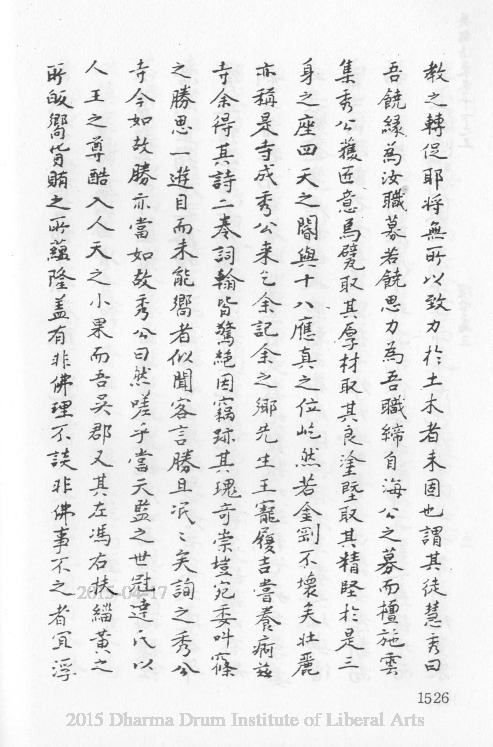 教之轉促耶将無所以致力於土木者未固也謂其徒慧秀曰
吾饒縁為汝職募若饒思力為吾職締自海公之募而檀施雲
集秀公獲匠意焉甓取其厚材取其良塗塈取其精堅於是三
身之座四天之閽與十八應真之位屹然若金剛不壞矣壮麗
亦稱是寺成秀公来乞余記余之鄉先生王寵履吉嘗養疴兹
寺余得其詩二奉詞翰皆驚絶因竊跡其瑰奇崇塏宛委叫窱
之勝思一遊目而未能嚮者似聞客言勝且泯〻矣詢之秀公
寺今如故勝亦當如故秀公曰然嗟乎當天監之世冠達氏以
人王之尊酷入人天之小果而吾吳郡又其左馮右扶緇黄之
所皈嚮貨賄之所蘊隆盖有非佛理不談非佛事不之者冝浮
2015-04-17
1526
2015 Dharma Drum Institute of Liberal Arts